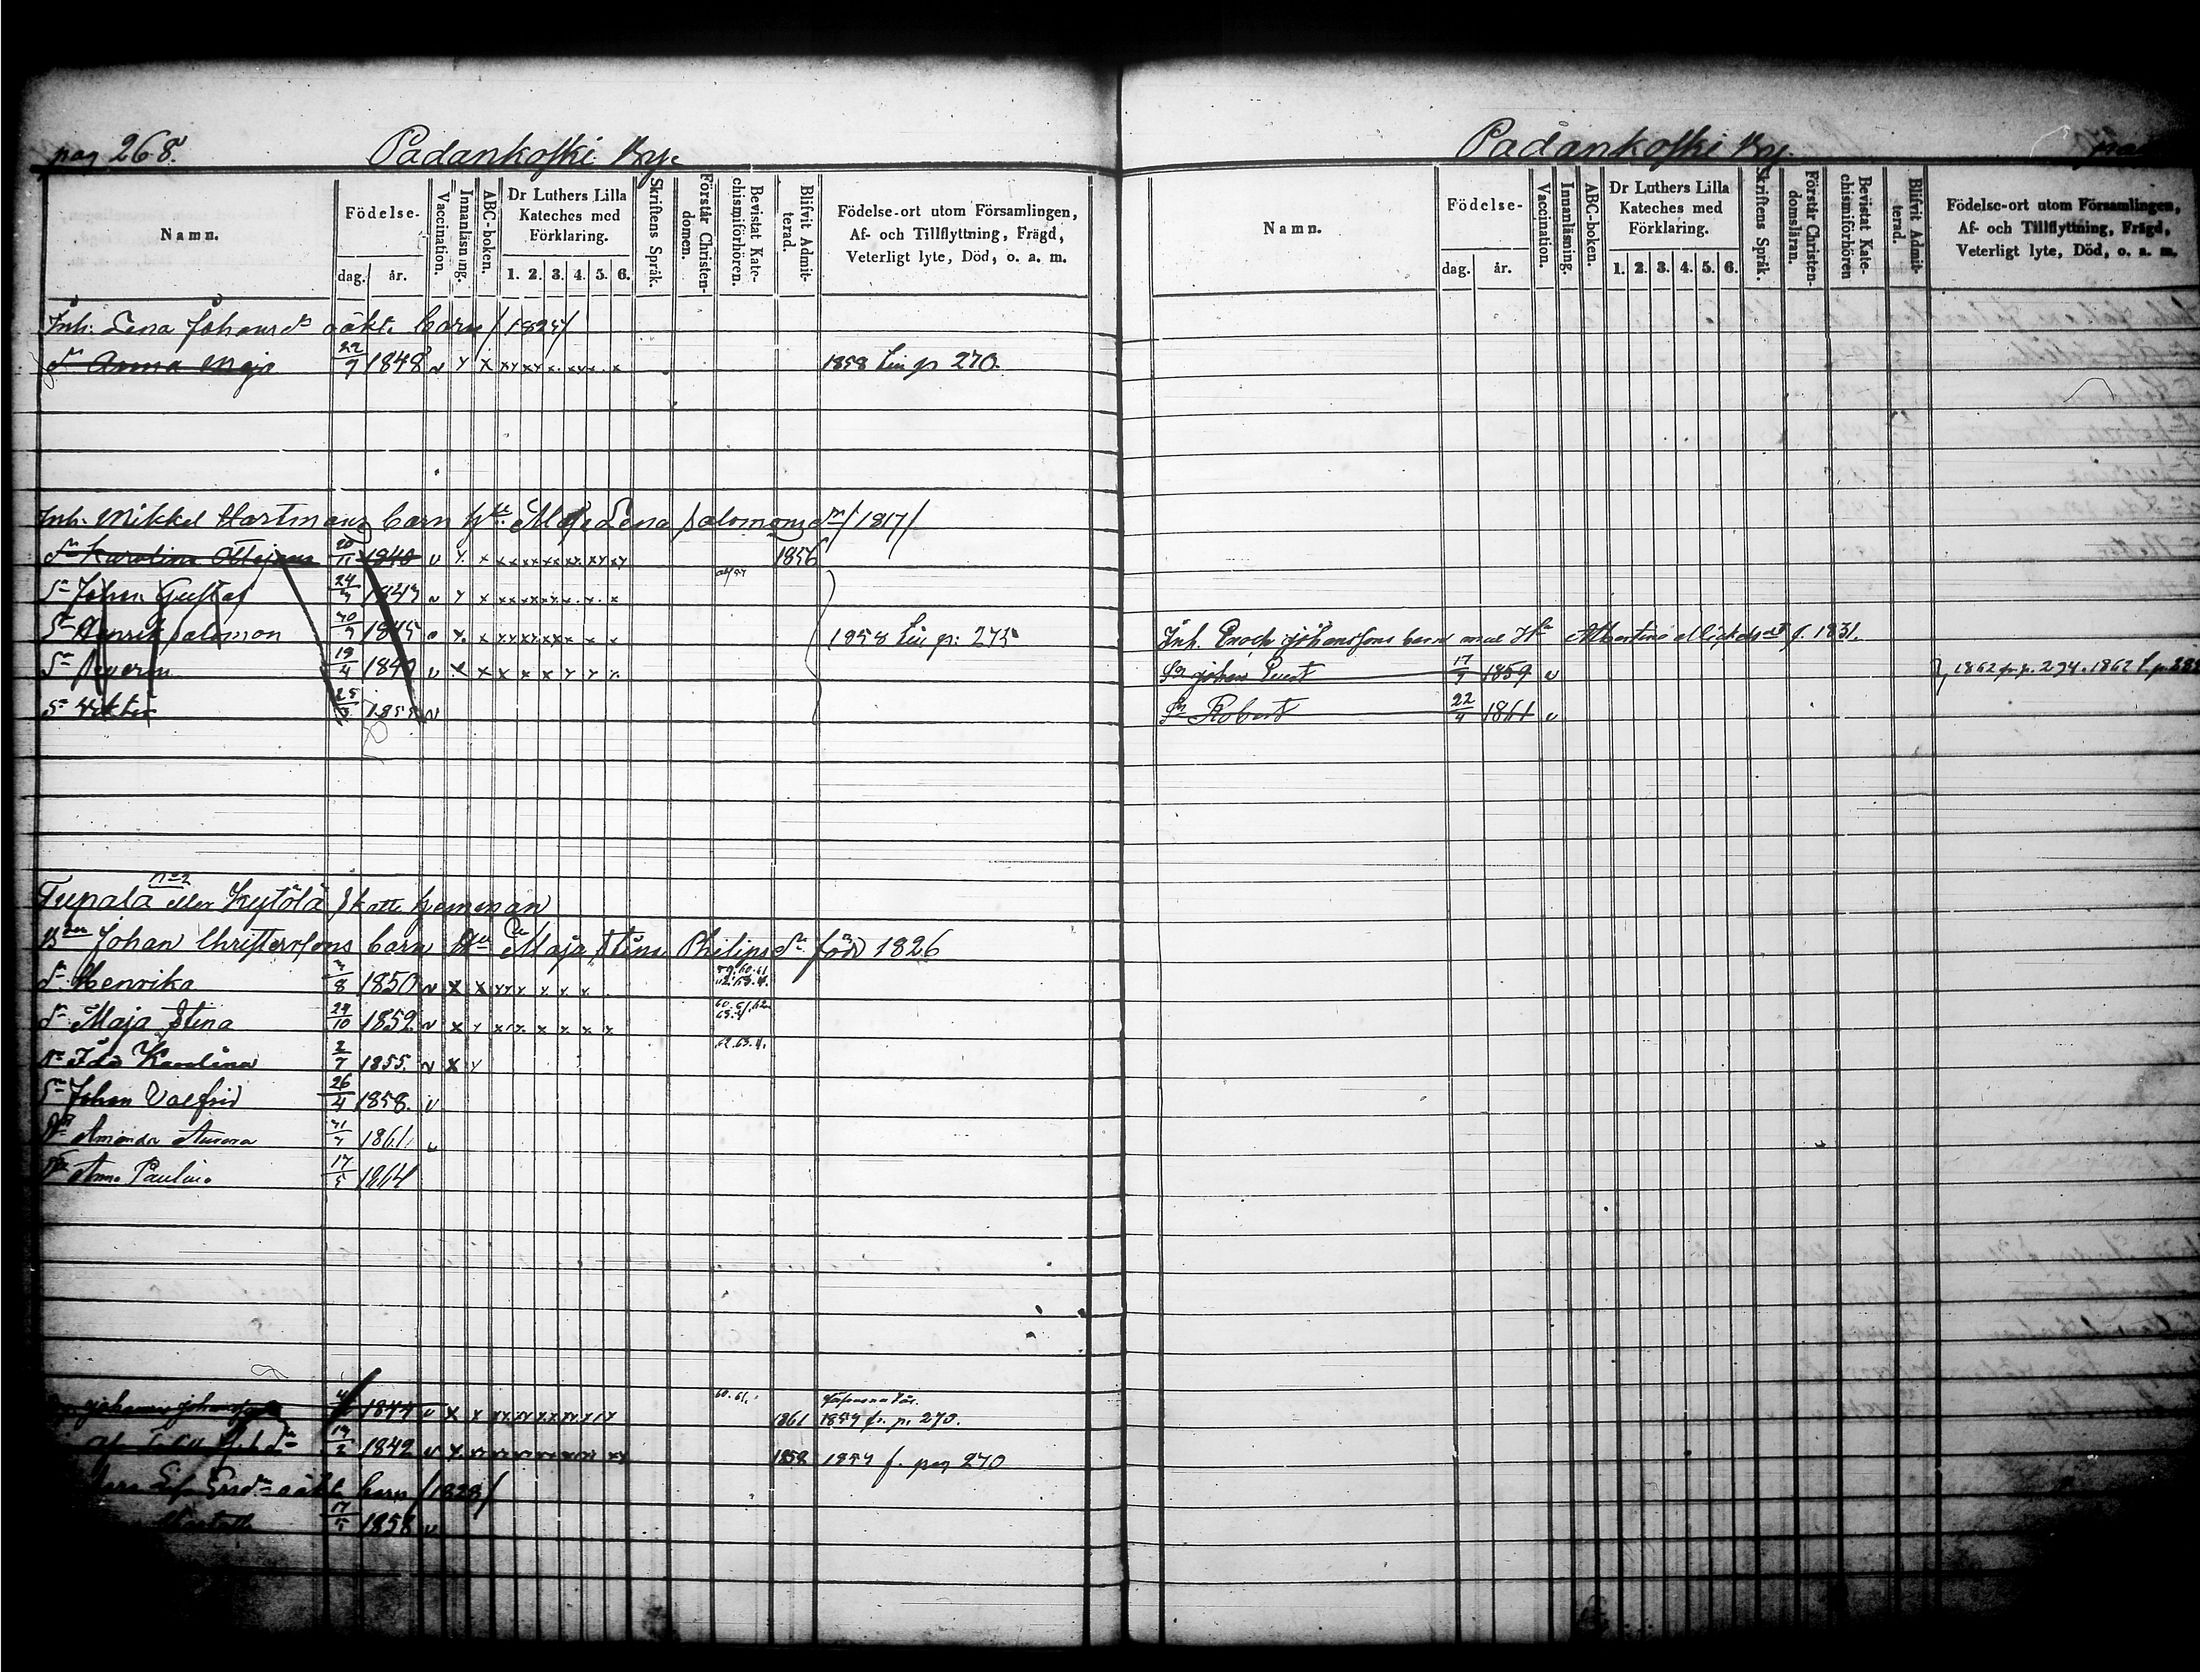 pag 268.
Padankoski By.
Namn.
Födelse-
dag. år.
Vaccination.
Innanläsning.
ABC-boken.
Dr Luthers Lilla Kateches med Förklaring.
1. 2. 3. 4. 5. 6.
Skriftens Språk.
Förstår Christendomen.
Bevistat Katechismiförhören.
Blifvit Admitterad.
Födelse-ort utom Församlingen, Af- och Tillflyttning, Frägd, Veterligt lyte, Död, o. a. m.
Inh. Lena Johansdr oäkt. barn /1824/
dr Anna Maja 22/9 1848 v 1858 Liu p 270.
Inh. Mikkel Hartmans barn Hu Maja Lena Salomonsdr /1817/
dr Karolina 20/11 1840 v 1856
Sn Johan Gustaf 24/7 1843 v
Sn Henrik Salomon 30/7 1845 v 1858 Liu p: 275
Sn Severin 19/4 1849 v
Sn Viktor 25/3 1855 v
no 2
Tupala eller Kytölä Skatte hemman
Bder Johan Christerssons barn Hu Maja Stina Philipsdr född 1826
dr Henrika 3/8 1850 v 59.60.61 62.63.4.
dr Maja Stina 29/10 1852 v 60.61.62 63.4
dr Ida Karolina 2/7 1855. v 62.63.4.
Sn Johan Valfrid 26/4 1858. v
dr Amanda Aurora 31/7 1861. v
dr Anna Paulina 17/5 1864
1844 v 60.61. 1861 1859 fr. p. 270.
19/2 1842 v 1858 1859 f. pag 270
Lisa Ersdr oäkt barn /1828/
17/5 1858 v
Padankoski By.
Namn.
Födelse-
dag. år.
Vaccination.
Innanläsning.
ABC-boken.
Dr Luthers Lilla Kateches med Förklaring.
1. 2. 3. 4. 5. 6.
Skriftens Språk.
Förstår Christendomsläran.
Bevistat Katechismiförhören
Blifvit Admitterad.
Födelse-ort utom Församlingen, Af- och Tillflyttning, Frägd, Veterligt lyte, Död, o. a. m.
Inh. Enoch Johanssons barn med Hu Albertina Mickelsdr f. 1831.
Sn Johan Evert 17/9 1859 v 1862 fr. p. 294. 1862 t. p.
Sn Robert 22/4 1861 v